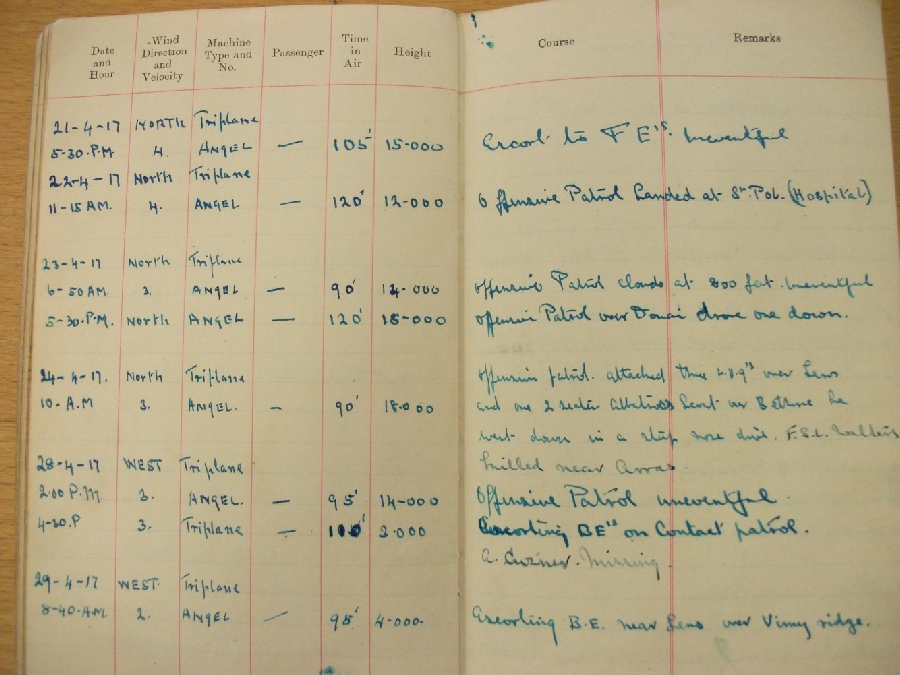 Date and Hour
Wind Direction and Velocity
Machine Type and No.
Passenger
Time in Air
Height
Course
Remarks
21-4-17 NORTH Triplane
5-30.P.M 4. ANGEL — 105' 15-000 Escort to F E's. Uneventful
22-4-17 North Triplane
11-15 AM. 4. ANGEL. — 120' 12-000 Offensive Patrol Landed at St. Pol. (Hospital)
23-4-17 North Triplane
6-50 AM 3. ANGEL — 90' 14-000 Offensive Patrol clouds at 800 feet. Uneventful
5-30.P.M. North ANGEL — 120' 15-000 Offensive Patrol over Douai drove one down.
24-4-17. North Triplane Offensive patrol. attacked three over Lens
10-A.M 3. ANGEL. — 90' 15.000 and one 2 seater Albatross Scout over Bethune he
went down in a steep nose dive. F.S.L.
killed near Arras.
28-4-17 WEST Triplane
2.00 P.M. 3. ANGEL. — 95' 14-000 Offensive Patrol uneventful.
4-30.P 3. Triplane — 2.000 Escorting BE's on Contact patrol.
A. Cuzner. Missing.
29-4-17 WEST Triplane
8-40.A.M. 2. ANGEL — 95' 4-000. Escorting B.E. near Lens over Vimy ridge.